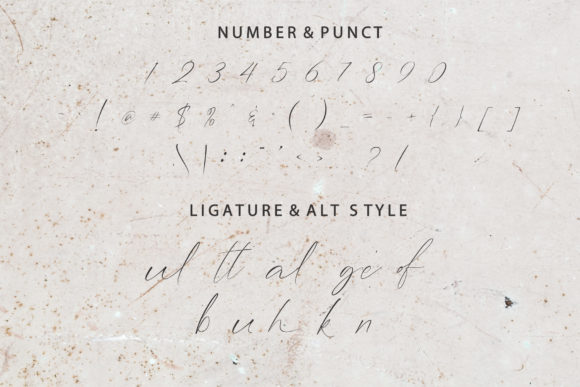 NUMBER & PUNCT
1 2 3 4 5 6 7 8 9 0
! @ # $ % ^ & * ( ) _ = - + { } [ ]
\ | : ; " ' < > ? /
LIGATURE & ALT STYLE
ul tt al ge of
b u h k n